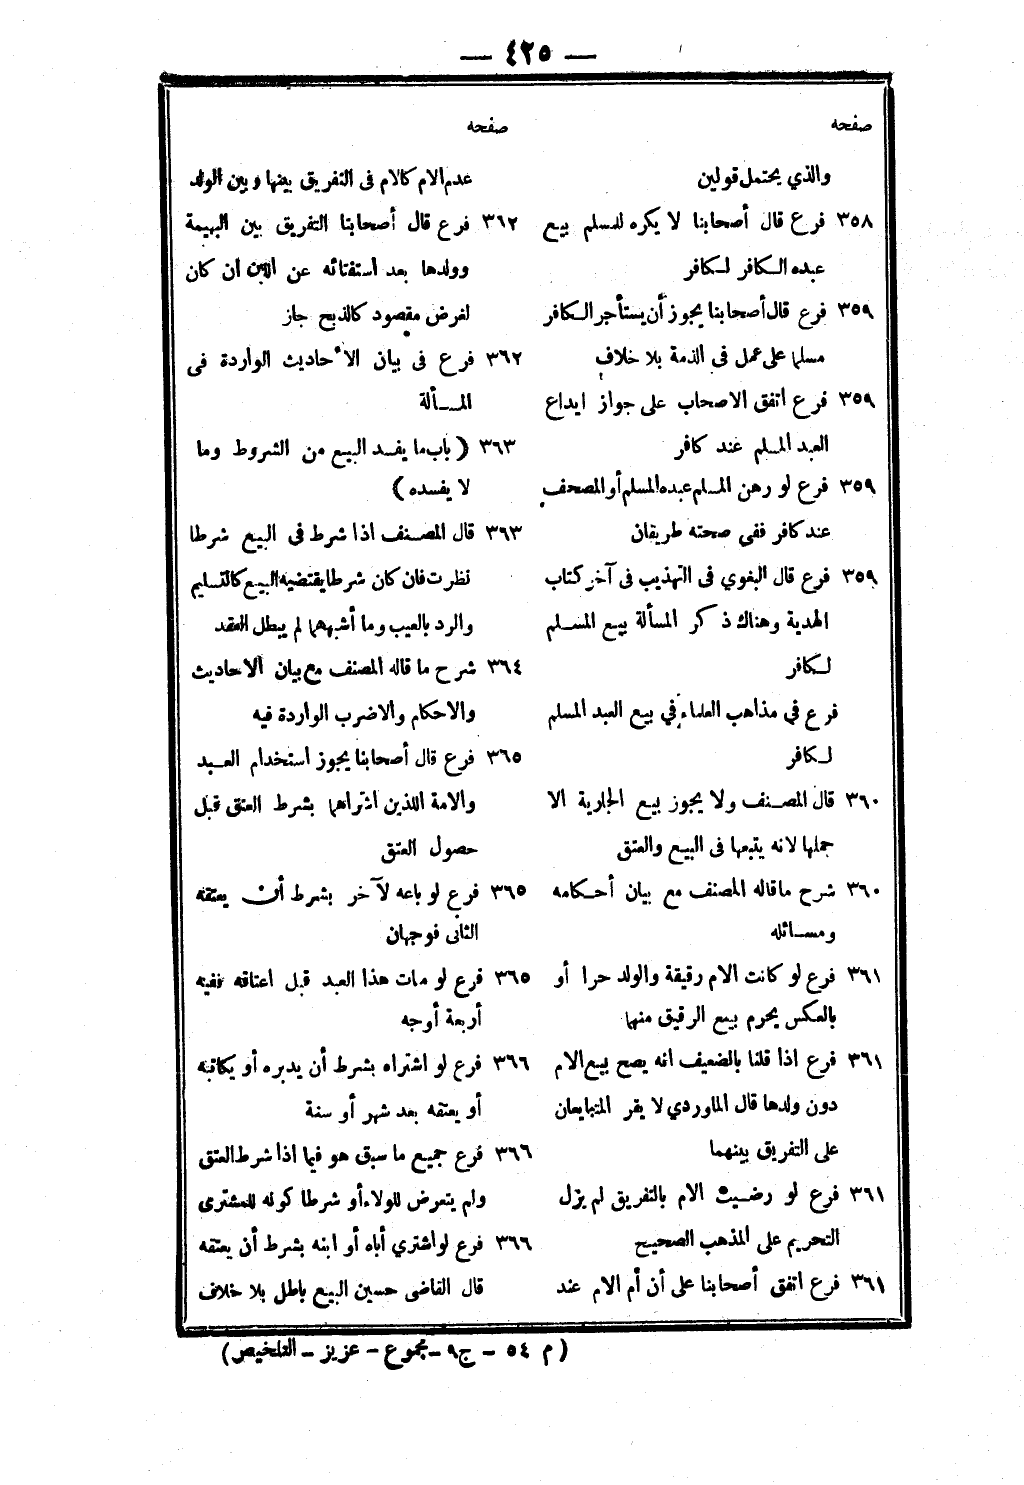 — ٤٢٥ —
صفحه
والذي يحتمل قولين
٣٥٨ فرع قال أصحابنا لا يكره للمسلم بيع
عبده الكافر لكافر
٣٥٩ فرع قال أصحابنا يجوز أن يستأجر الكافر
مسلما على عمل فى الذمة بلا خلاف
٣٥٩ فرع اتفق الاصحاب على جواز ايداع
العبد المسلم عند كافر
٣٥٩ فرع لو رهن المسلم عبده المسلم أو المصحف
عند كافر ففى صحته طريقان
٣٥٩ فرع قال البغوي فى التهذيب فى آخر كتاب
الهدية وهناك ذكر المسألة بيع المسلم
لكافر
فرع في مذاهب العلماء في بيع العبد المسلم
لكافر
٣٦٠ قال المصنف ولا يجوز بيع الجارية الا
حملها لانه يتبعها فى البيع والعتق
٣٦٠ شرح ما قاله المصنف مع بيان أحكامه
ومسائله
٣٦١ فرع لو كانت الام رقيقة والولد حرا أو
بالعكس يحرم بيع الرقيق منهما
٣٦١ فرع اذا قلنا بالضعيف انه يصح بيع الام
دون ولدها قال الماوردي لا يقر المتبايعان
على التفريق بينهما
٣٦١ فرع لو رضيت الام بالتفريق لم يزل
التحريم على المذهب الصحيح
٣٦١ فرع اتفق أصحابنا على أن أم الام عند
صفحه
عدم الام كالام فى التفريق بينها وبين الولد
٣٦٢ فرع قال أصحابنا التفريق بين البهيمة
وولدها بعد استغنائه عن اللبن ان كان
لغرض مقصود كالذبح جاز
٣٦٢ فرع فى بيان الاحاديث الواردة فى
المسألة
٣٦٣ ( باب ما يفسد البيع من الشروط وما
لا يفسده )
٣٦٣ قال المصنف اذا شرط فى البيع شرطا
نظرت فان كان شرطا يقتضيه البيع كالتسليم
والرد بالعيب وما أشبههما لم يبطل العقد
٣٦٤ شرح ما قاله المصنف مع بيان الاحاديث
والاحكام والاضرب الواردة فيه
٣٦٥ فرع قال أصحابنا يجوز استخدام العبد
والامة اللذين اشتراهما بشرط العتق قبل
حصول العتق
٣٦٥ فرع لو باعه لآخر بشرط أن يعتقه
الثانى فوجهان
٣٦٥ فرع لو مات هذا العبد قبل اعتاقه ففيه
أربعة أوجه
٣٦٦ فرع لو اشتراه بشرط أن يدبره أو يكاتبه
أو يعتقه بعد شهر أو سنة
٣٦٦ فرع جميع ما سبق هو فيما اذا شرط العتق
ولم يتعرض للولاء أو شرطا كونه للمشترى
٣٦٦ فرع لو اشتري أباه أو ابنه بشرط أن يعتقه
قال القاضى حسين البيع باطل بلا خلاف
( م ٥٤ – ج٩ – مجموع – عزيز – التلخيص )